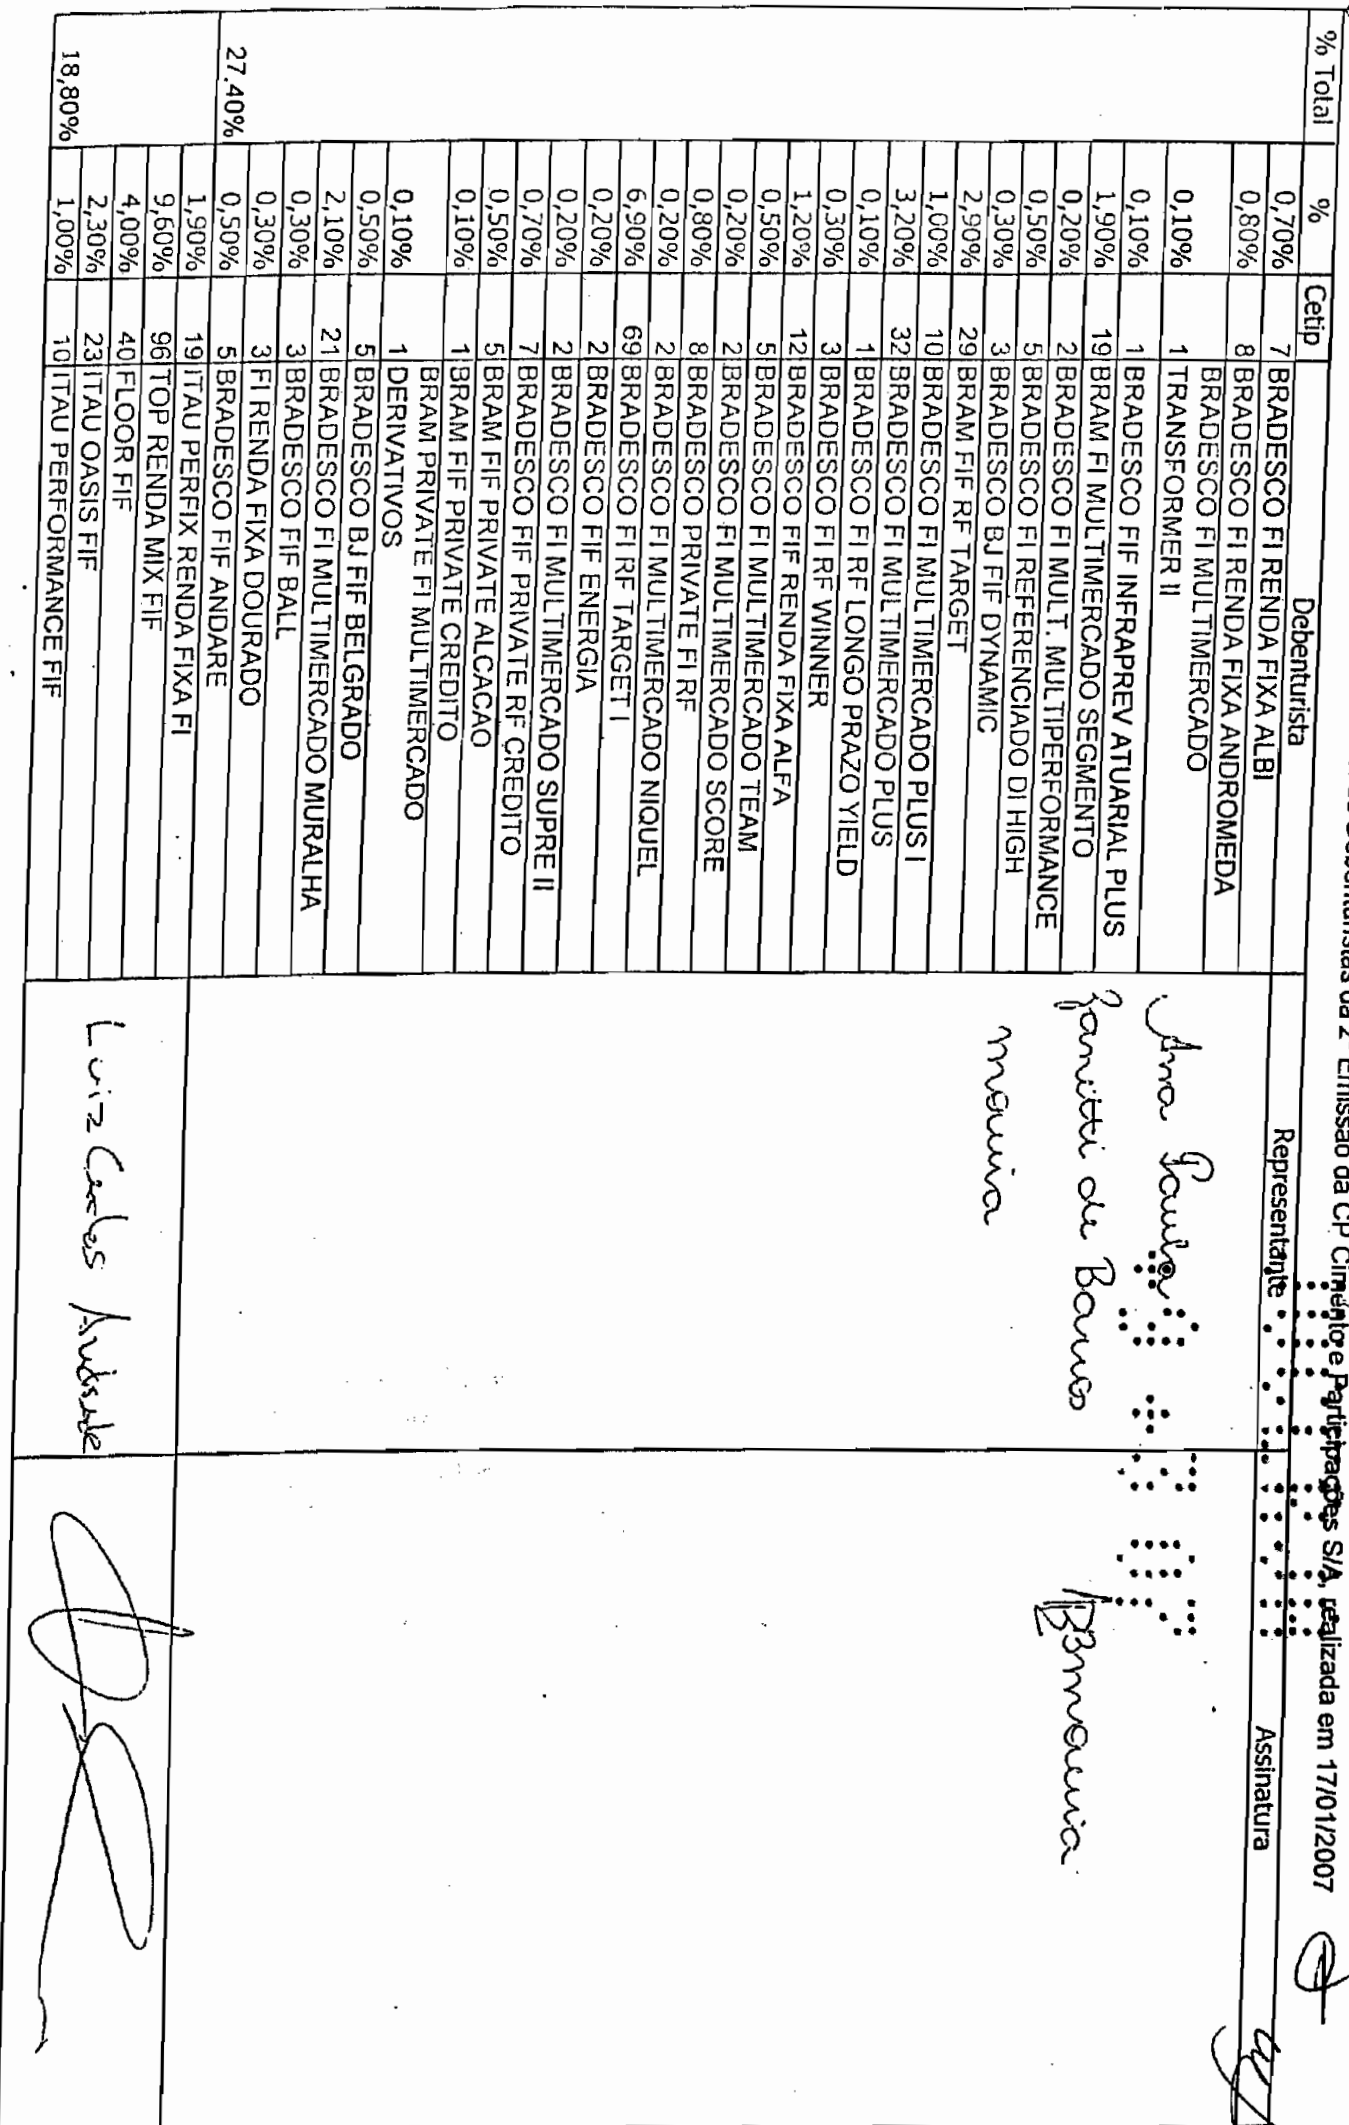 Debenturistas da 2ª Emissão da CP Cimento e Participações S/A, realizada em 17/01/2007
% Total % Cetip Debenturista Representante Assinatura
0,70% 7 BRADESCO FI RENDA FIXA ALBI
0,80% 8 BRADESCO FI RENDA FIXA ANDROMEDA
BRADESCO FI MULTIMERCADO
0,10% 1 TRANSFORMER II
0,10% 1 BRADESCO FIF INFRAPREV ATUARIAL PLUS
1,90% 19 BRAM FI MULTIMERCADO SEGMENTO
0,20% 2 BRADESCO FI MULT. MULTIPERFORMANCE
0,50% 5 BRADESCO FI REFERENCIADO DI HIGH
0,30% 3 BRADESCO BJ FIF DYNAMIC
2,90% 29 BRAM FIF RF TARGET
1,00% 10 BRADESCO FI MULTIMERCADO PLUS I
3,20% 32 BRADESCO FI MULTIMERCADO PLUS
0,10% 1 BRADESCO FI RF LONGO PRAZO YIELD
0,30% 3 BRADESCO FI RF WINNER
1,20% 12 BRADESCO FIF RENDA FIXA ALFA
0,50% 5 BRADESCO FI MULTIMERCADO TEAM
0,20% 2 BRADESCO FI MULTIMERCADO SCORE
0,80% 8 BRADESCO PRIVATE FI RF
0,20% 2 BRADESCO FI MULTIMERCADO NIQUEL
6,90% 69 BRADESCO FI RF TARGET I
0,20% 2 BRADESCO FIF ENERGIA
0,20% 2 BRADESCO FI MULTIMERCADO SUPRE II
0,70% 7 BRADESCO FIF PRIVATE RF CREDITO
0,50% 5 BRAM FIF PRIVATE ALCACAO
0,10% 1 BRAM FIF PRIVATE CREDITO
BRAM PRIVATE FI MULTIMERCADO
0,10% 1 DERIVATIVOS
0,50% 5 BRADESCO BJ FIF BELGRADO
2,10% 21 BRADESCO FI MULTIMERCADO MURALHA
0,30% 3 BRADESCO FIF BALL
0,30% 3 FI RENDA FIXA DOURADO
27.40% 0,50% 5 BRADESCO FIF ANDARE
Ana Paula
Zanitti de Barros
1,90% 19 ITAU PERFIX RENDA FIXA FI
9,60% 96 TOP RENDA MIX FIF
4,00% 40 FLOOR FIF
2,30% 23 ITAU OASIS FIF
18,80% 1,00% 10 ITAU PERFORMANCE FIF
Luiz Carlos Andrade